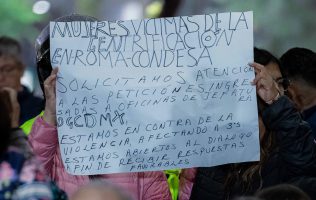 MUJERES VICTIMAS DE LA
GENTRIFICACIÓN
EN ROMA-CONDESA
SOLICITAMOS ATENCION
A LAS PETICIONES INGRE
SADAS A OFICINAS DE JEFATU
RA
DGCDMX
ESTAMOS EN CONTRA DE LA
VIOLENCIA AFECTANDO A 3ºS
ESTAMOS ABIERTOS AL DIALOGO
A FIN DE RECIBIR RESPUESTAS
FAVORABLES